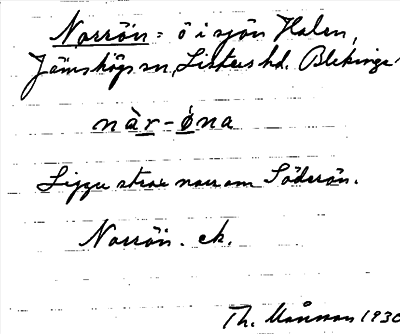 Norrön = ö i sjön Halen,
Jämshögs sn, Listers hd. Blekinge.
nàr-òna
Ligger strax norr om Söderön.
Norrön. ek.
Th. Månsson 1930